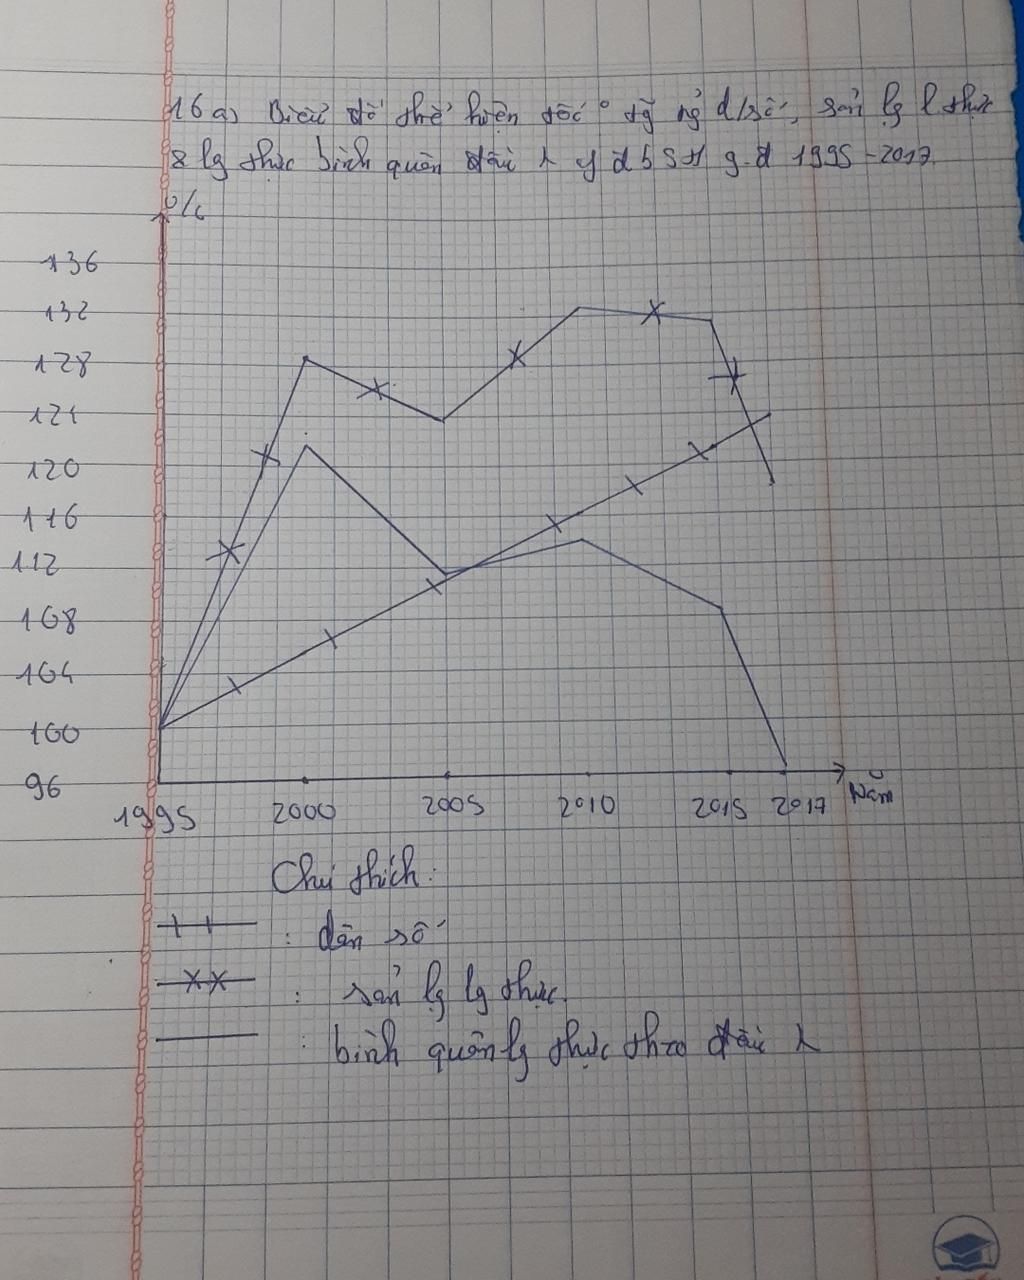 16a) Biểu đồ thể hiện tốc º tg ng d/số, sản lg l thực
& lg thực bình quân đầu λ y đbSH g.đ 1995-2017
%
136
132
128
124
120
116
112
108
104
100
96
1995 2000 2005 2010 2015 2017 Năm
Chú thích:
: dân số
: sản lg lg thực.
: bình quân lg thực theo đầu λ